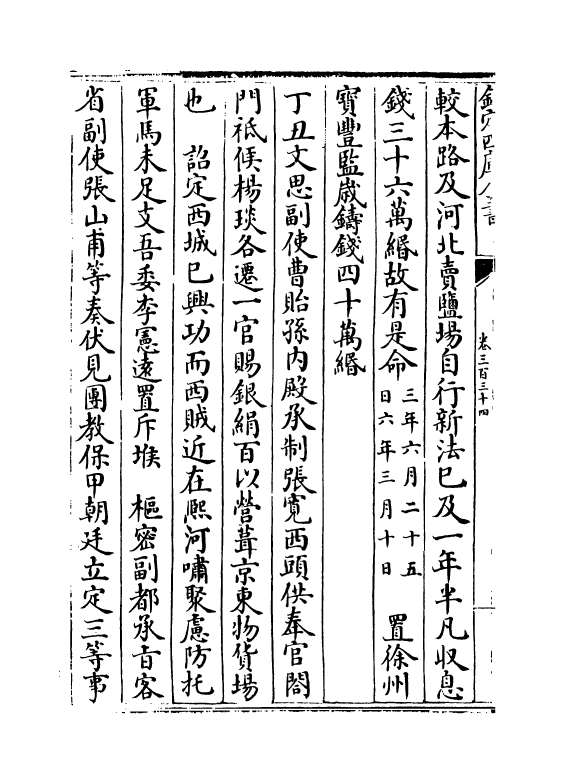 欽定四庫全書
卷三百三十四
較本路及河北賣鹽場自行新法已及一年半凡収息
錢三十六萬緡故有是命三年六月二十五日六年三月十日　置徐州
寶豐監歳鑄錢四十萬緡
丁丑文思副使曹貽孫内殿承制張寛西頭供奉官閤
門祗候楊琰各遷一官賜銀絹百以營葺京東物貨場
也　詔定西城已興功而西賊近在熈河嘯聚慮防托
軍馬未足支吾委李憲遠置斥堠　樞密副都承旨客
省副使張山甫等奏伏見團教保甲朝廷立定三等事